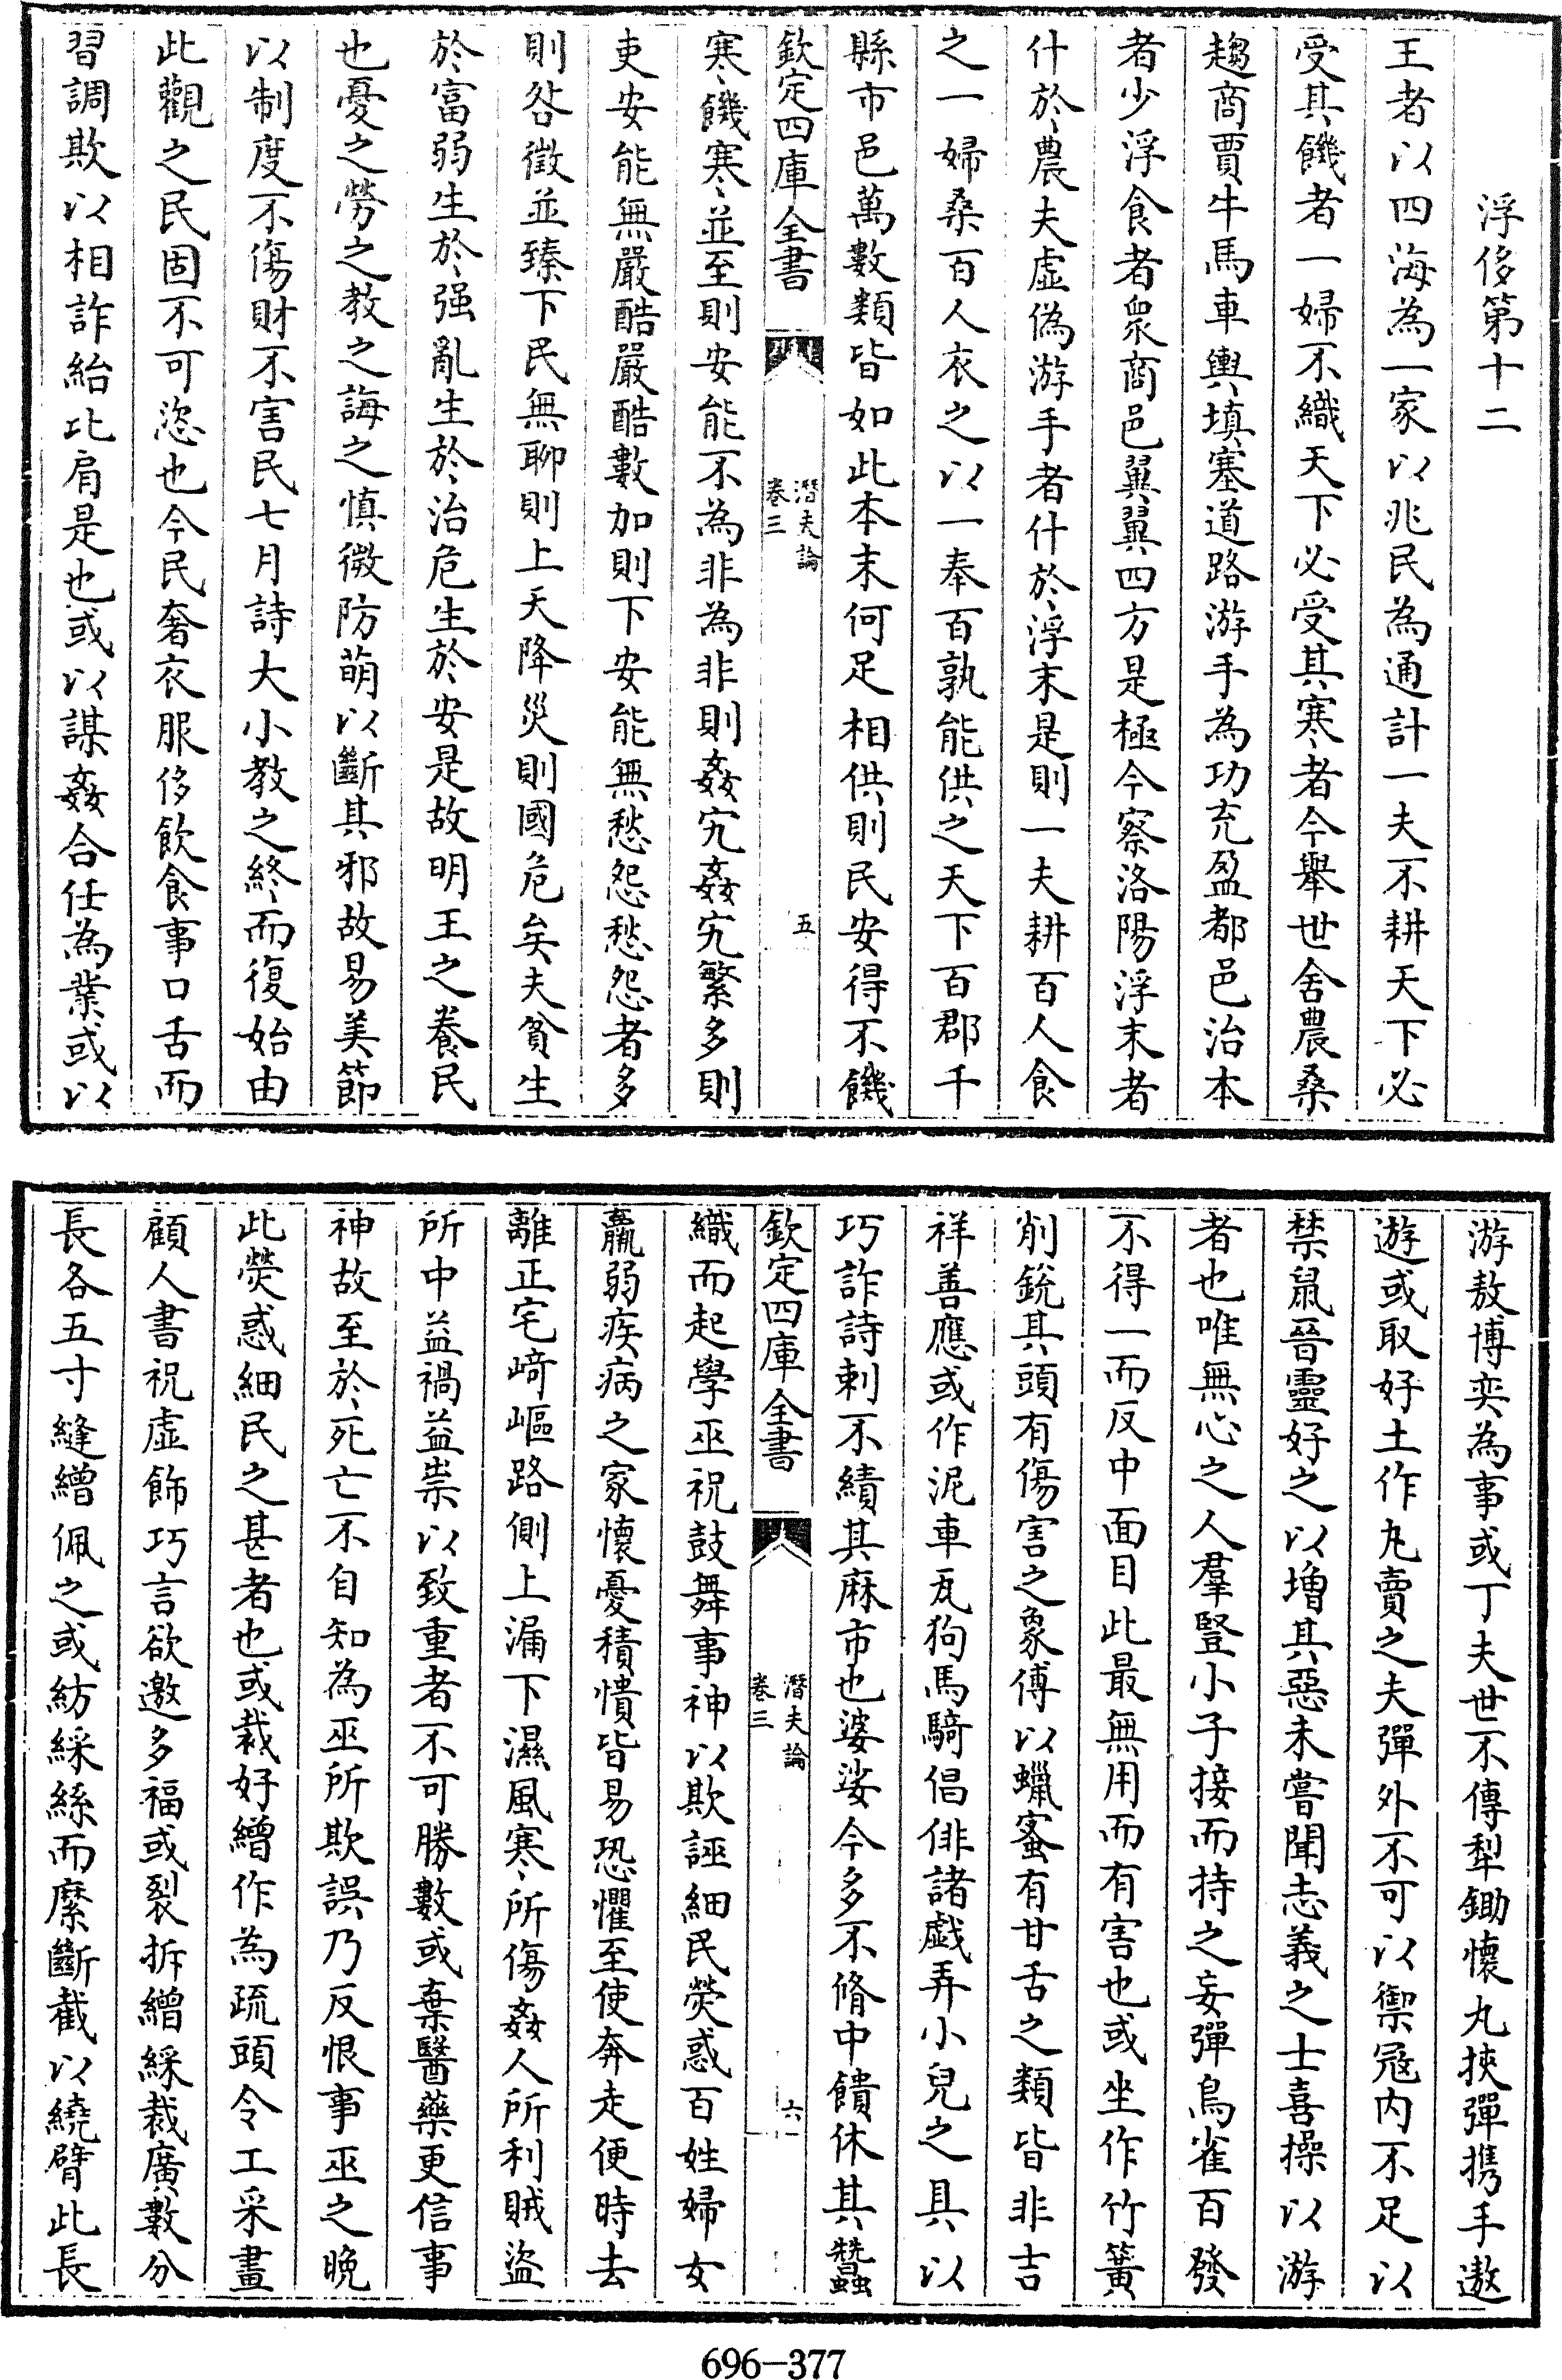 浮侈第十二
王者以四海為一家以兆民為通計一夫不耕天下必
受其饑者一婦不織天下必受其寒者今舉世舍農桑
趨商賈牛馬車輿填塞道路游手為功充盈都邑治本
者少浮食者衆商邑翼翼四方是極今察洛陽浮末者
什於農夫虛偽游手者什於浮末是則一夫耕百人食
之一婦桑百人衣之以一奉百孰能供之天下百郡千
縣市邑萬數類皆如此本末何足相供則民安得不饑
欽定四庫全書
潛夫論
卷三
五
寒饑寒並至則安能不為非為非則姦宄姦宄繁多則
吏安能無嚴酷嚴酷數加則下安能無愁怨愁怨者多
則咎徵並臻下民無聊則上天降災則國危矣夫貧生
於富弱生於强亂生於治危生於安是故明王之養民
也憂之勞之教之誨之慎微防萌以斷其邪故易美節
以制度不傷財不害民七月詩大小教之終而復始由
此觀之民固不可恣也今民奢衣服侈飲食事口舌而
習調欺以相詐紿比肩是也或以謀姦合任為業或以
游敖博奕為事或丁夫世不傳犁鋤懷丸挾彈携手遨
遊或取好土作丸賣之夫彈外不可以禦冦内不足以
禁鼠晉靈好之以增其惡未嘗聞志義之士喜操以游
者也唯無心之人羣豎小子接而持之妄彈鳥雀百發
不得一而反中面目此最無用而有害也或坐作竹簧
削銳其頭有傷害之象傅以蠟蜜有甘舌之類皆非吉
祥善應或作泥車瓦狗馬騎倡俳諸戯弄小兒之具以
巧詐詩刺不績其麻市也婆娑今多不脩中饋休其蠶
欽定四庫全書
潛夫論
卷三
六
織而起學巫祝鼓舞事神以欺誣細民熒惑百姓婦女
羸弱疾病之家懷憂積憒皆易恐懼至使奔走便時去
離正宅崎嶇路側上漏下濕風寒所傷姦人所利賊盜
所中益禍益祟以致重者不可勝數或棄醫藥更信事
神故至於死亡不自知為巫所欺誤乃反恨事巫之晚
此熒惑細民之甚者也或裁好繒作為疏頭令工采畫
顧人書祝虛飾巧言欲邀多福或裂拆繒綵裁廣數分
長各五寸縫繒佩之或紡綵絲而縻斷截以繞臂此長
696-377